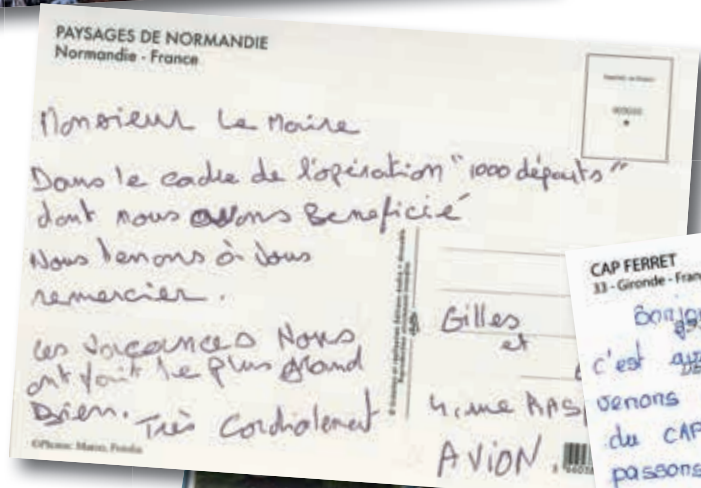 PAYSAGES DE NORMANDIE
Normandie - France
Monsieur Le Maire
Dans le cadre de l'opération "1000 départs"
dont nous avons Beneficié
Nous tenons à vous
remercier.
Les vacances Nous
ont fait le plus grand
Bien. Très Cordialement
Gilles
et
4, rue RASP
AVION
CAP FERRET
33 - Gironde - Fran
Bonjou
c'est
venons
du CAP
passons